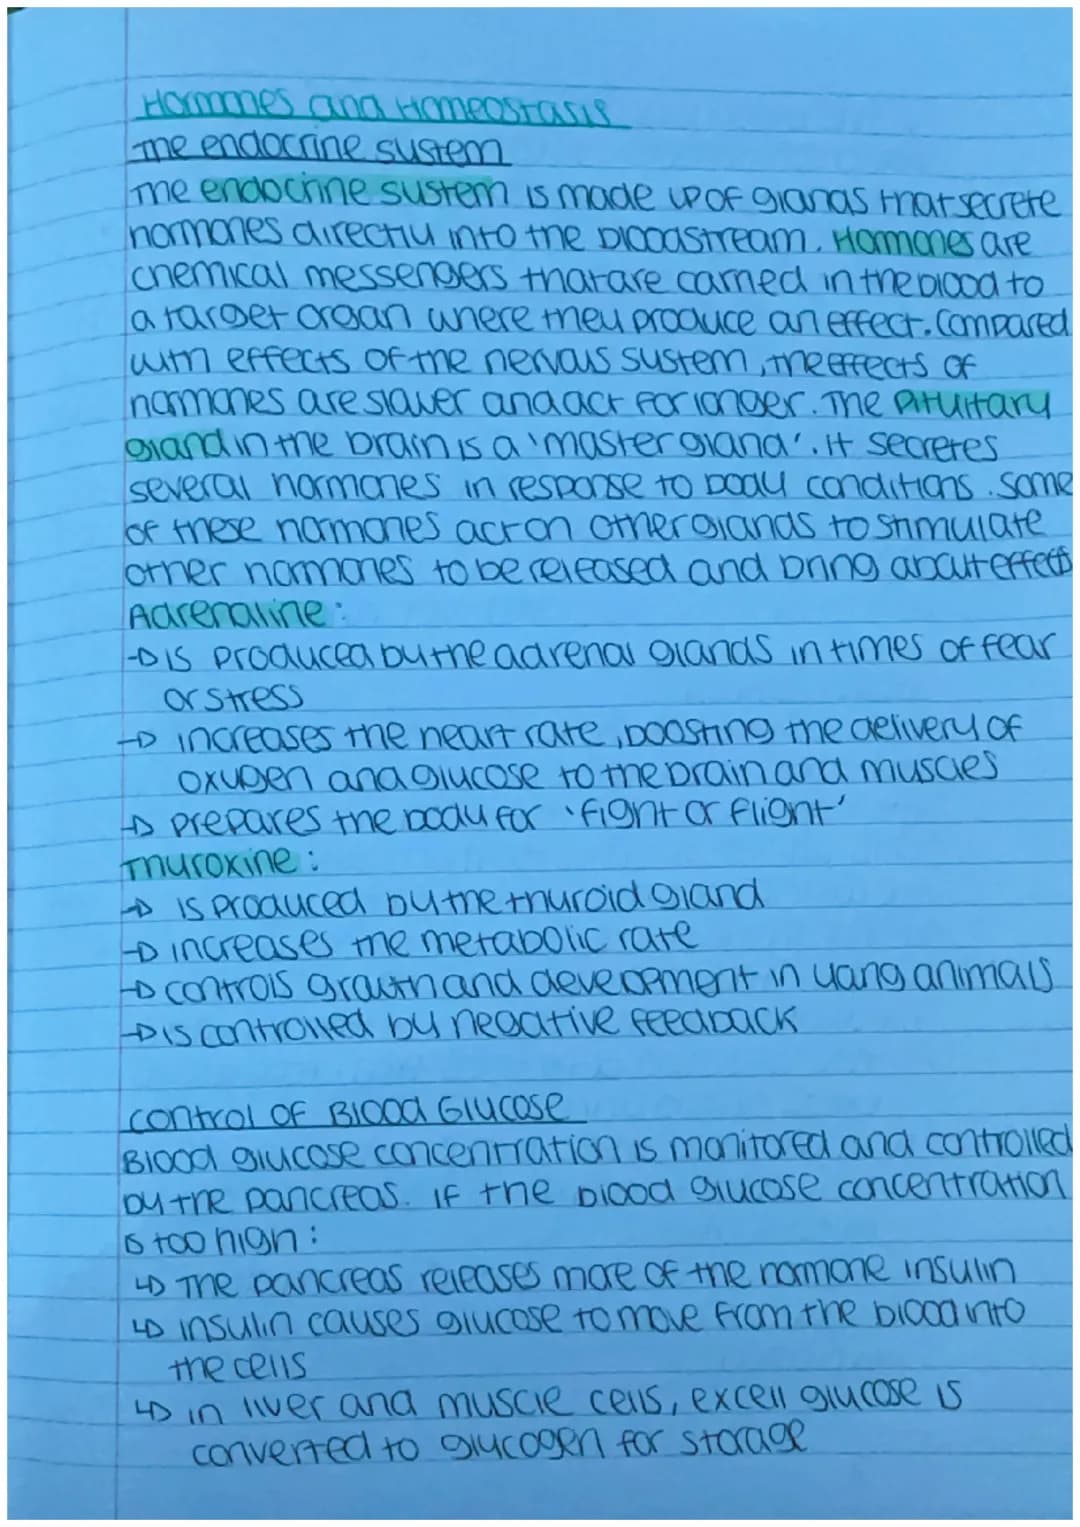 Hormones and Homeostasis
The endocrine system
The endocrine system is made up of glands that secrete
hormones directly into the bloodstream. Hormones are
chemical messengers that are carried in the blood to
a target organ where they produce an effect. Compared
with effects of the nervous system, the effects of
hormones are slower and act for longer. The Pituitary
gland in the brain is a 'master gland'. It secretes
several hormones in response to body conditions. Some
of these hormones act on other glands to stimulate
other hormones to be released and bring about effects
Adrenaline:
→ is produced by the adrenal glands in times of fear
or stress
→ increases the heart rate, boosting the delivery of
oxygen and glucose to the brain and muscles
→ prepares the body for 'fight or flight'
Thyroxine:
→ is produced by the thyroid gland
→ increases the metabolic rate
→ controls growth and development in young animals
→ is controlled by negative feedback
Control of Blood Glucose
Blood glucose concentration is monitored and controlled
by the pancreas. If the blood glucose concentration
is too high:
↳ The pancreas releases more of the hormone insulin
↳ insulin causes glucose to move from the blood into
the cells
↳ in liver and muscle cells, excell glucose is
converted to glycogen for storage